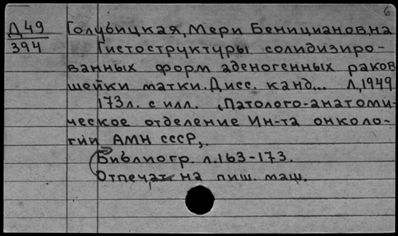 6
Д 49
394
Голубицкая, Мери Бенициановна
Гистоструктуры солидизиро-
ванных форм аденогенных раков
шейки матки. Дисс. канд... Л, 1949
173л. с илл. (Патолого-анатоми-
ческое отделение Ин-та онколо-
гии АМН СССР).
Библиогр. л.163-173.
Отпечат. на пиш. маш.